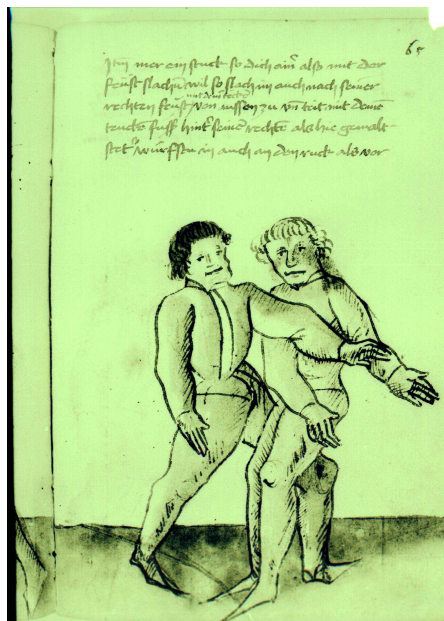 65
Itm mer ein stuck so dich ainr also mit der
feinst slachn wil so slach in auch nach seiner
mit dem rechten
rechten feinst von aussen zu vn trit mit deine
fuss hintr seine rechte als hie gemalt
stet so wurfstu in auch an den ruck als vor